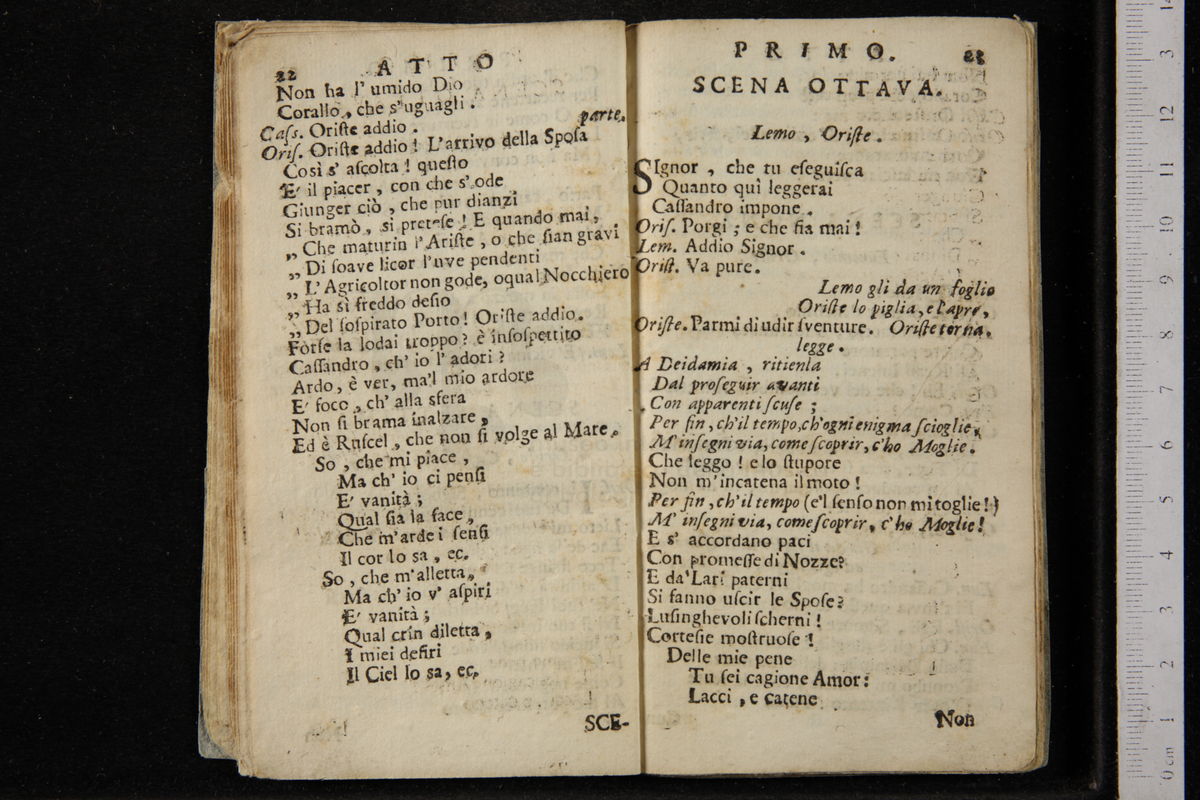 22 ATTO
Non ha l'umido Dio
Corallo, che s'uguagli.
Caſs. Oriſte addio. parte.
Oriſ. Oriſte addio! L'arrivo della Spoſa
Così s' aſcolta! queſto
E' il piacer, con che s'ode
Giunger ciò, che pur dianzi
Si bramò, si preteſe! E quando mai,
„ Che maturin l'Ariſte, o che ſian gravi
„ Di ſoave licor l'uve pendenti
„ L'Agricoltor non gode, oqual Nocchiero
„ Ha sì freddo deſio
„ Del ſoſpirato Porto! Oriſte addio.
Forſe la lodai troppo? è inſoſpettito
Caſſandro, ch' io l' adori?
Ardo, è ver, ma'l mio ardore
E' foco, ch' alla sfera
Non ſi brama inalzare,
Ed è Ruſcel, che non ſi volge al Mare.
So, che mi piace,
Ma ch' io ci penſi
E' vanità;
Qual ſia la face,
Che m'arde i ſenſi
Il cor lo sa, ec.
So, che m'alletta,
Ma ch' io v' aſpiri
E' vanità;
Qual crin diletta,
I miei deſiri
Il Ciel lo sa, ec.
SCE-
PRIMO. 23
SCENA OTTAVA.
Lemo, Oriſte.
SIgnor, che tu eſeguiſca
Quanto quì leggerai
Caſſandro impone.
Oriſ. Porgi; e che ſia mai!
Lem. Addio Signor.
Oriſt. Va pure.
Lemo gli da un foglio
Oriſte lo piglia, e l'apre,
Oriſte. Parmi di udir ſventure. Oriſte torna.
legge.
A Deidamia, ritienla
Dal proſeguir avanti
Con apparenti ſcuſe;
Per fin, ch'il tempo, ch'ogni enigma ſcioglie,
M'inſegni via, come ſcoprir, c'ho Moglie.
Che leggo! e lo ſtupore
Non m'incatena il moto!
Per fin, ch'il tempo (e'l ſenſo non mi toglie!)
M' inſegni via, come ſcoprir, c'ho Moglie!
E s' accordano paci
Con promeſſe di Nozze?
E da' Lari paterni
Si fanno uſcir le Spoſe?
Luſinghevoli ſcherni!
Corteſie moſtruoſe!
Delle mie pene
Tu ſei cagione Amor:
Lacci, e catene
Non